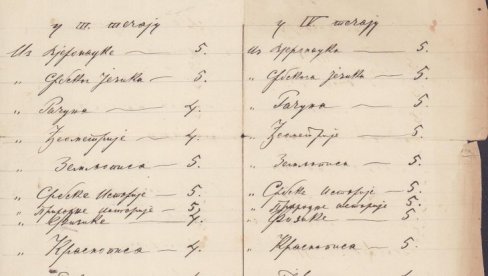 у III. течају
Из Вјеронауке — 5.
„ Србског језика — 5.
„ Рачуна — 4.
„ Геометрије — 4.
„ Землјописа — 5.
„ Србске историје 5.
„ Природне историје 5.
„ Физике — 4.
„ Краснописа 4.
у IV. течају
Из Вјеронауке — 5.
„ Србскога језика — 5.
„ Рачуна — 5.
„ Геометрије — 5.
„ Земљописа — 5.
„ Србске историје 5.
„ Природне историје 5.
„ Физике — 5.
„ Краснописа 5.